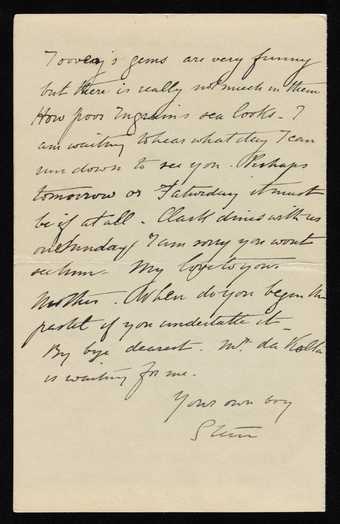 Toovey's gems are very funny
but there is really not much in them
How poor Ingram's sea looks - I
am waiting to hear what day I can
run down to see you. Perhaps
tomorrow or Saturday it must
be if at all - Clark dines with us
on Sunday I am sorry you wont
see him - My love to your
mother. When do you begin the
pastel if you undertake it -
By bye dearest. Mr. da Costa
is waiting for me.
Your own boy